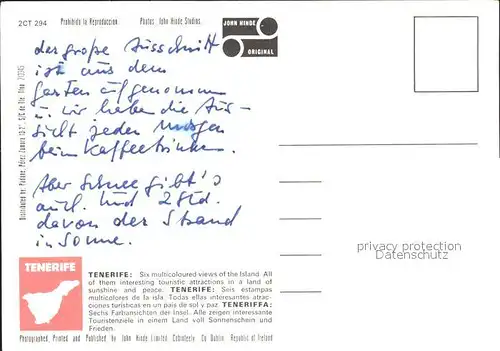 2CT 294
Prohibida la Reproduccion
Photos John Hinde Studios.
JOHN HINDE
ORIGINAL
das große Ausschnitt
ist aus dem
Garten aufgenommen
u. wir haben die Aus-
sicht jeden Morgen
beim Kaffeetrinken.
Aber Schnee gibt's
auch. Und 2 Std.
davon der Strand
in Sonne.
Distributed by:
privacy protection
Datenschutz
TENERIFE
TENERIFE: Six multicoloured views of the Island. All
of them interesting touristic attractions in a land of
sunshine and peace. TENERIFE: Seis estampas
multicolores de la isla. Todas ellas interesantes atrac-
ciones turisticas en un pais de sol y paz. TENERIFFA:
Sechs Farbansichten der Insel. Alle zeigen interessante
Touristenziele in einem Land voll Sonnenschein und
Frieden.
Photographed, Printed and Published by John Hinde Limited. Cabinteely. Co Dublin. Republic of Ireland